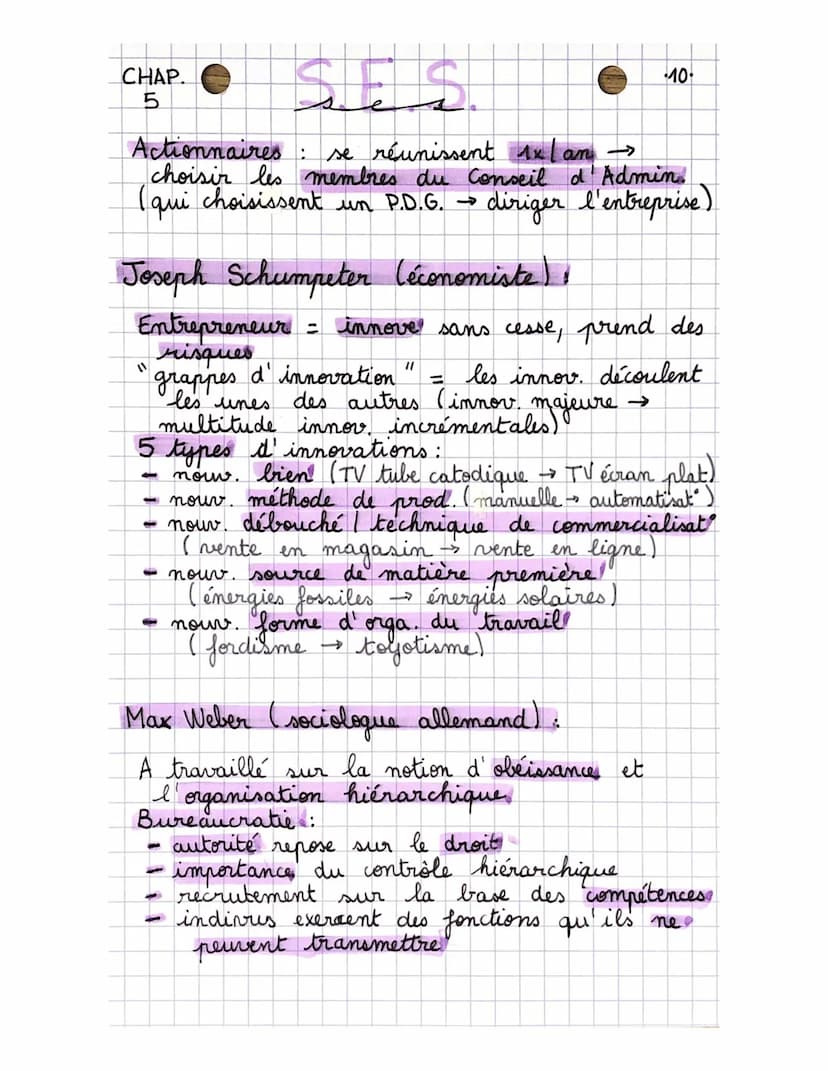 CHAP. S.E.S. ·10·
5 ses
Actionnaires : se réunissent 1x/an →
choisir les membres du Conseil d'Admin.
(qui choisissent un P.D.G. → diriger l'entreprise)
Joseph Schumpeter (économiste) :
Entrepreneur = innove sans cesse, prend des
risques
"grappes d'innovation" = les innov. découlent
les unes des autres (innov. majeure →
multitude innov. incrémentales)
5 types d'innovations :
- nouv. bien (TV tube catodique → TV écran plat)
- nouv. méthode de prod. (manuelle → automatisat°)
- nouv. débouché / technique de commercialisat°
(vente en magasin → vente en ligne)
- nouv. source de matière première
(énergies fossiles → énergies solaires)
- nouv. forme d'orga. du travail
(fordisme → toyotisme)
Max Weber (sociologue allemand) :
A travaillé sur la notion d'obéissance et
l'organisation hiérarchique.
Bureaucratie :
- autorité repose sur le droit
- importance du contrôle hiérarchique
- recrutement sur la base des compétences
- indivius exercent des fonctions qu'ils ne
peuvent transmettre